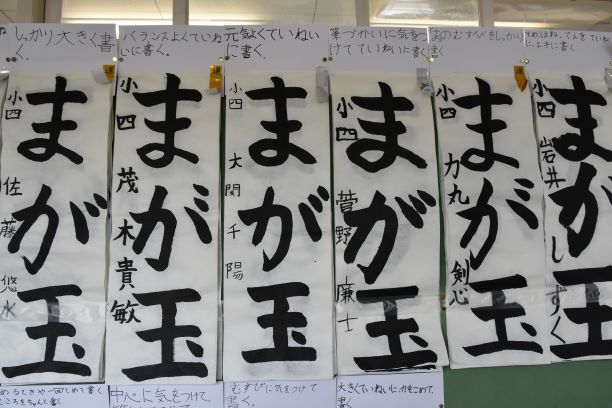 しっかり大きく書
く。
まが玉
小四 佐藤 悠水
バランスよくていね
いに書く。
選
まが玉
小四 茂木貴敏
元気よくていねい
に書く。
まが玉
小四 大関千陽
筆づかいに気をつ
けてていねいに書く
まが玉
小四 菅野 廉士
まのむすびをしっかり
書く
選
まが玉
小四 力丸 剣心
まが玉
小四 岩井 しずく
中心に気をつけて、
むすびに気をつけて
書く。
大きくていねいに力をこめて、
書く